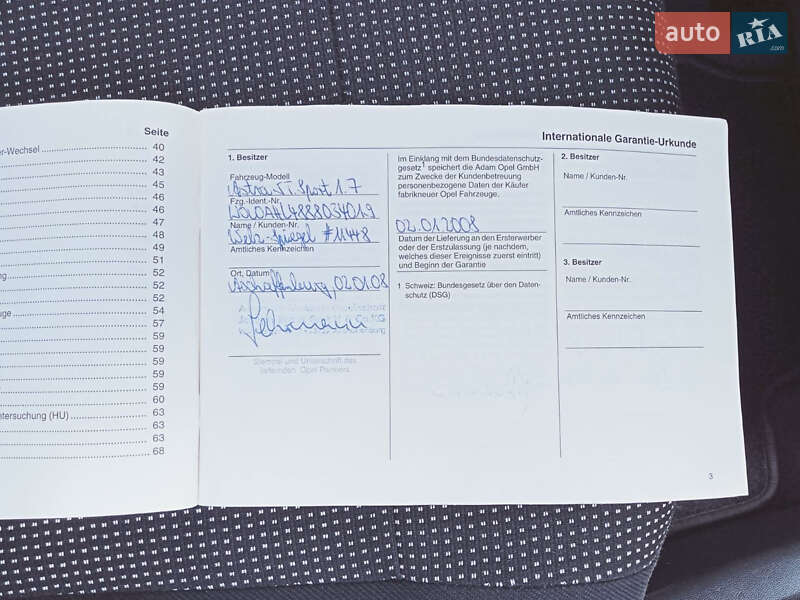 auto RIA .com
Seite
er-Wechsel 40
42
43
45
46
46
47
48
49
51
52
52
52
54
57
59
59
59
59
60
ntersuchung (HU) 63
63
63
68
Internationale Garantie-Urkunde
1. Besitzer
Fahrzeug-Modell
Astra-TT Sport 1.7
Fzg.-Ident.-Nr.
W0L0AHL4888034019
Name / Kunden-Nr.
#11448
Amtliches Kennzeichen
Ort, Datum
Aschaffenburg, 02.01.08
Stempel und Unterschrift des
liefernden Opel Partners
Im Einklang mit dem Bundesdatenschutz-
gesetz¹ speichert die Adam Opel GmbH
zum Zwecke der Kundenbetreuung
personenbezogene Daten der Käufer
fabrikneuer Opel Fahrzeuge.
02.01.2008
Datum der Lieferung an den Ersterwerber
oder der Erstzulassung (je nachdem,
welches dieser Ereignisse zuerst eintritt)
und Beginn der Garantie
1 Schweiz: Bundesgesetz über den Daten-
schutz (DSG)
2. Besitzer
Name / Kunden-Nr.
Amtliches Kennzeichen
3. Besitzer
Name / Kunden-Nr.
Amtliches Kennzeichen
3